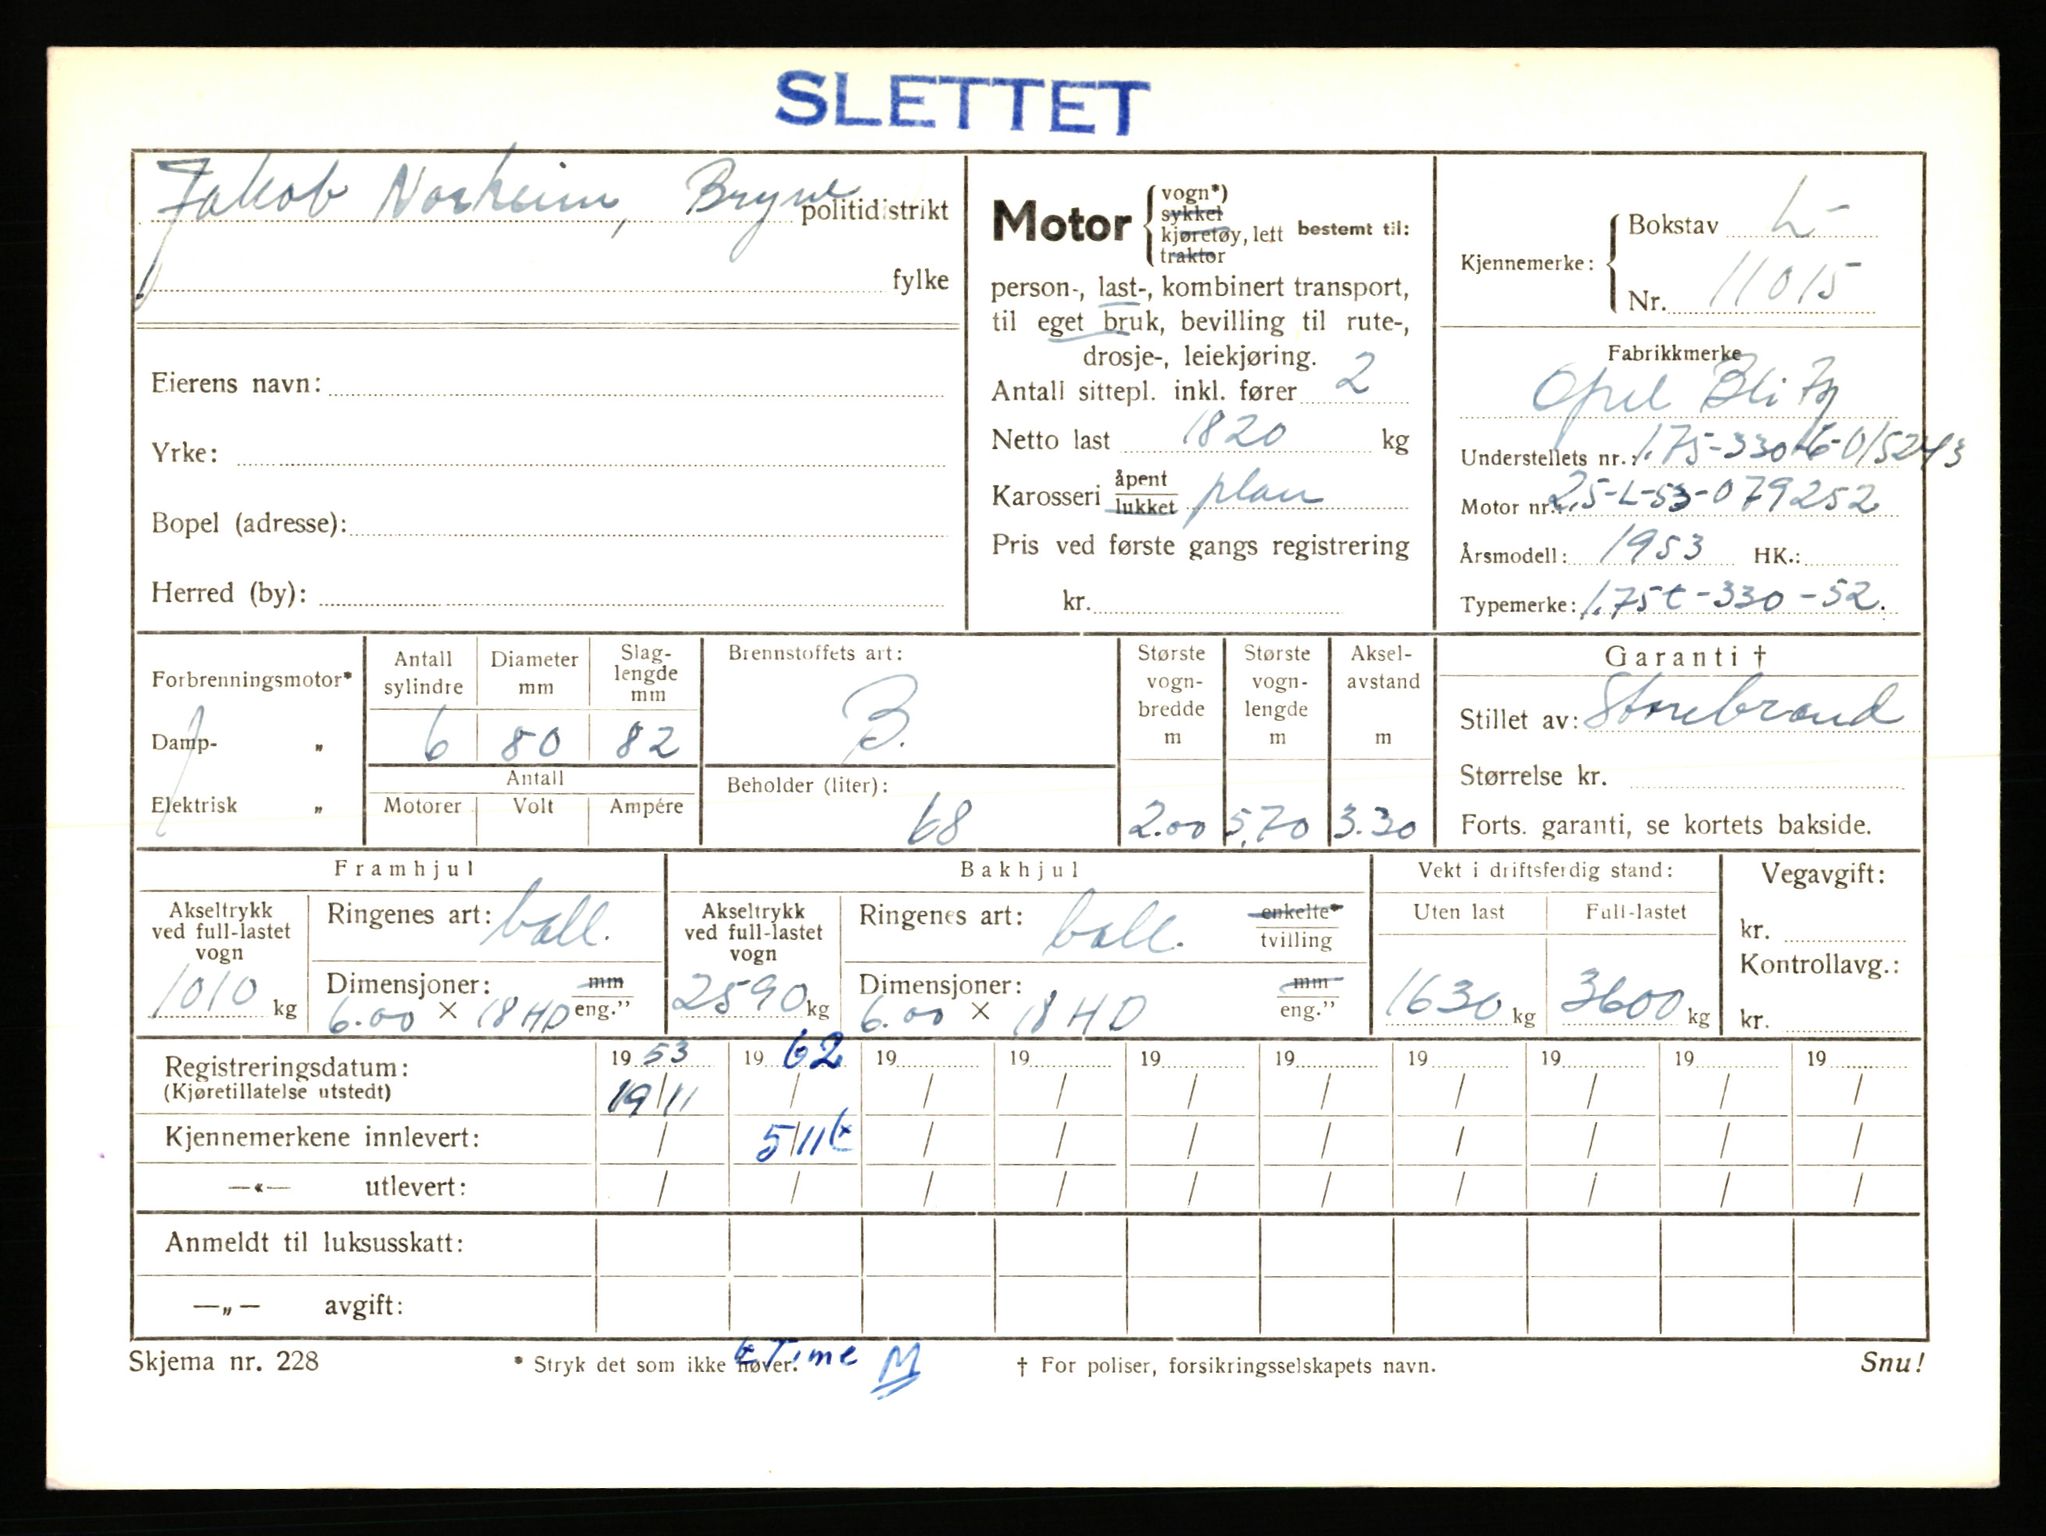 SLETTET
Jakob Norheim, Bryne politidistrikt
fylke
Eierens navn:
Yrke:
Bopel (adresse):
Herred (by):
Motor vogn*) sykkel kjøretøy, lett traktor bestemt til:
person-, last-, kombinert transport,
til eget bruk, bevilling til rute-,
drosje-, leiekjøring.
Antall sittepl. inkl. fører 2
Netto last 1820 kg
Karosseri åpent lukket plan
Pris ved første gangs registrering
kr.
Kjennemerke: Bokstav L-
Nr. 11015
Fabrikkmerke
Opel Blitz
Understellets nr.: 1.75-330-6-015243
Motor nr.: 2,5-L-53-079252
Årsmodell: 1953 HK.:
Typemerke: 1.75t-330-52.
Forbrenningsmotor*
Damp- „
Elektrisk „
Antall sylindre Diameter mm Slag-lengde mm
6 80 82
Antall
Motorer Volt Ampére
Brennstoffets art:
B.
Beholder (liter):
68
Største vogn-bredde m Største vogn-lengde m Aksel-avstand m
2.00 5.70 3.30
Garanti †
Stillet av: Storebrand
Størrelse kr.
Forts. garanti, se kortets bakside.
Framhjul
Akseltrykk ved full-lastet vogn
1010 kg
Ringenes art: ball.
Dimensjoner: mm
6.00 × 18 HD eng.”
Bakhjul
Akseltrykk ved full-lastet vogn
2590 kg
Ringenes art: ball. enkelte* tvilling
Dimensjoner: mm
6.00 × 18 HD eng.”
Vekt i driftsferdig stand:
Uten last Full-lastet
1630 kg 3600 kg
Vegavgift:
kr.
Kontrollavg.:
kr.
Registreringsdatum: 19 53 19 62 19 19 19 19 19 19 19 19
(Kjøretillatelse utstedt) 19/11 / / / / / / / / /
Kjennemerkene innlevert: / 5/11 / / / / / / / /
—«— utlevert: / / / / / / / / / /
Anmeldt til luksusskatt:
—„— avgift:
Time M
Skjema nr. 228 * Stryk det som ikke høver. † For poliser, forsikringsselskapets navn. Snu!